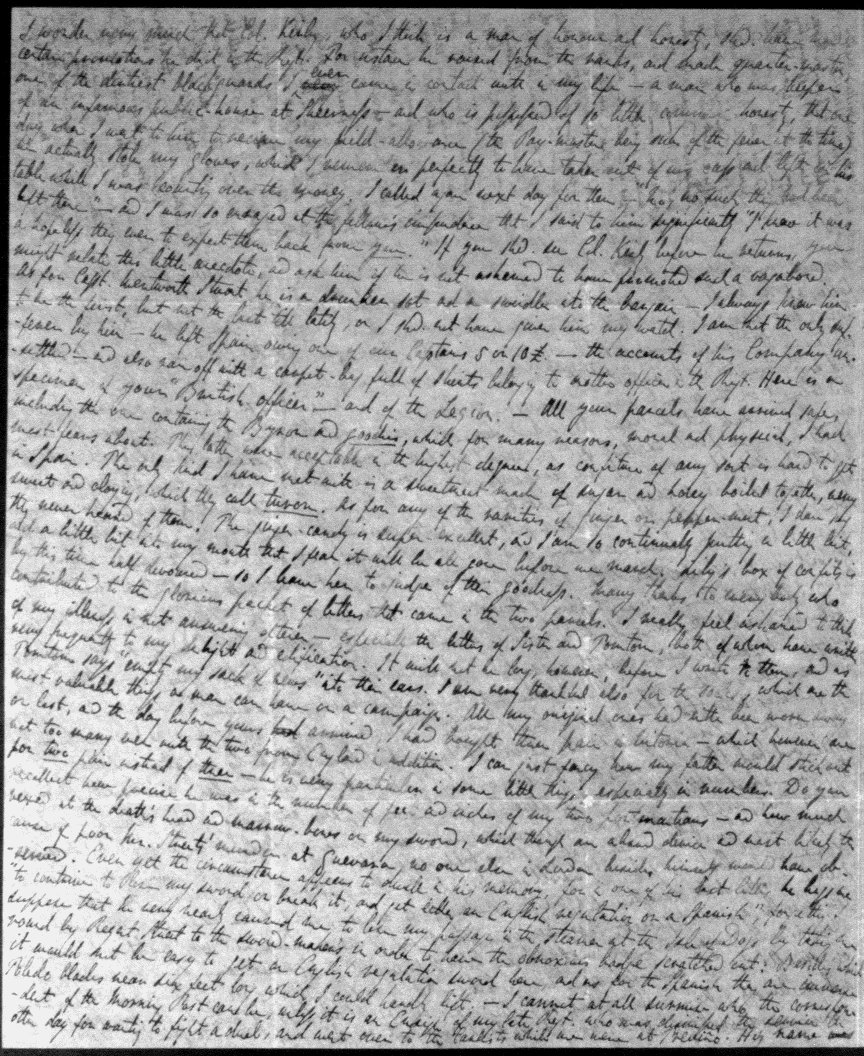 I wonder very much that Col. Kirby, who I think is a man of honour and honesty, shd. have
certain promotions he did in the Regt. For instance he raised from the ranks, and made quarter-master,
one of the dirtiest blackguards I ever came in contact with in my life — a man who was keeper
of an infamous public-house at Sheerness — and who is possessed of so little common honesty, that one
day when I went to him to receive my field-allowance (the Pay-master being sick of the fever at the time)
he actually stole my gloves, which I remember perfectly to have taken out of my cap and left on his
table while I was counting over the money. I called upon next day for them — "No, no such thing had been
left there" — and I was so enraged at the fellow's impudence that I said to him significantly "I know it was
a hopeless thing even to expect them back from you." If you shd. see Col. Kirby before he returns, you
might relate this little anecdote, and ask him if he is not ashamed to have promoted such a vagabond.
As for Capt. Wentworth I trust he is a drunken sot and a swindler into the bargain — I always knew him
to be the first, but not the last till lately, or I shd. not have given him my watch. I am not the only suf-
-ferer by him — he left Spain owing one of our Captains 5 or 10£ — the accounts of his Company un-
-settled — and also ran off with a carpet-bag full of shirts belonging to another officer in the Regt. Here is a
specimen of your "British officer" — and of the Legion. — All your parcels have arrived safe,
including the one containing the Byron and goodies, which for many reasons, moral and physical, I had
most fears about. The latter were acceptable in the highest degree, as confiture of any sort is hard to get
in Spain. The only kind I have met with is a sweetmeat made of sugar and honey boiled together, very
sweet and cloying, which they call turon. As for any of the varieties of ginger or pepper-mint, I dare say
they never heard of them. The ginger-candy is super-excellent, and I am so continually putting a little bit,
and a little bit into my mouth that I fear it will be all gone before we march. Lily's box of comfits is
by this time half devoured — so I leave her to judge of their goodness. Many thanks to every body who
contributed to the glorious packet of letters that came in the two parcels. I really feel ashamed to think
of my idleness in not answering others — especially the letters of Sister and Bonton, both of whom have written
very frequently to my delight and edification. It will not be long, however, before I write to them, and as
Bonton says "empt my sack of news" into their ears. I am very thankful also for the socks, which are the
most valuable things a man can have on a campaign. All my original ones had either been worn away
or lost, and the day before yours arrived I had bought three pair in Vitoria — which however are
not too many even with the two from England in addition. I can just fancy how my father would stick out
for two pair instead of three — he is very particular in some little things, especially in numbers. Do you
recollect how precise he was in the number of feet and inches of my two portmanteaus — and how much
vexed at the death's head and marrow-bones on my sword, which though an absurd device and most likely the
cause of poor Mr. Streets' murder at Guevara, no one else in London besides himself would have ob-
-served. Even yet the circumstance appears to dwell in his memory, for in one of his last letters he begs me
"to contrive to lose my sword, or break it, and get either an English regulation or a Spanish"; forgetting
suppose that he very nearly caused me to lose my passage in the steamer at the
round by Regent Street to the sword-maker's in order to have the obnoxious badge scratched out. Besides which
it would not be easy to get an English regulation sword here and as for the Spanish they are
Toledo blades near six feet long which I could hardly lift. — I cannot at all surmise who the correspon-
-dent of the Morning Post can be, unless it is an Ensign of my late Regt. who was dismissed the service the
other day for wanting to fight a duel, and went over to the Carlists while we were at Treviño. His name was